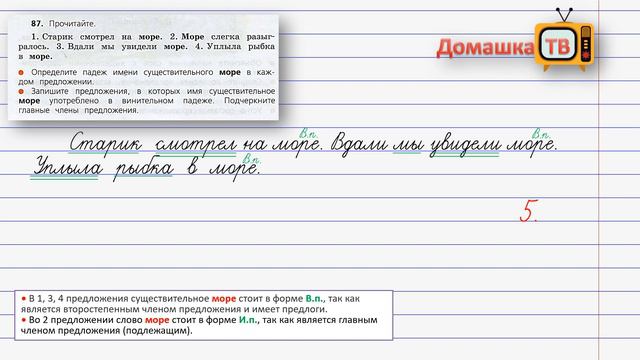 87. Прочитайте.
1. Старик смотрел на море. 2. Море слегка разыг-
ралось. 3. Вдали мы увидели море. 4. Уплыла рыбка
в море.
● Определите падеж имени существительного море в каж-
дом предложении.
● Запишите предложения, в которых имя существительное
море употреблено в винительном падеже. Подчеркните
главные члены предложения.
Домашка ТВ
В.п. В.п.
Старик смотрел на море. Вдали мы увидели море.
В.п.
Уплыла рыбка в море.
5.
• В 1, 3, 4 предложения существительное море стоит в форме В.п., так как
является второстепенным членом предложения и имеет предлоги.
• Во 2 предложении слово море стоит в форме И.п., так как является главным
членом предложения (подлежащим).